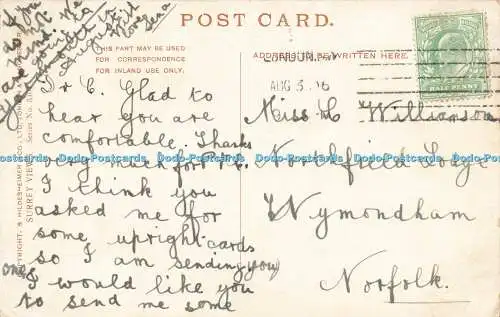 POST CARD.
THIS PART MAY BE USED
FOR CORRESPONDENCE
FOR INLAND USE ONLY.
ADDRESS TO BE WRITTEN HERE.
LONDON
AUG 3
HALFPENNY
J & C. Glad to
hear you are
comfortable. Thanks
very much for P.C.
I think you
asked me for
some upright cards
so I am sending you
one I would like you
to send me some
if you
do not
mind. We
are going
August
Love
Lena
Miss L Williamson
Northfield Lodge
Wymondham
Norfolk.
COPYRIGHT. S HILDESHEIMER & CO., LTD.
SURREY VIEWS Series No.
Dodo-Postcards Dodo-Postcards Dodo-Postcards Dodo-Postcards Dodo-Postcards